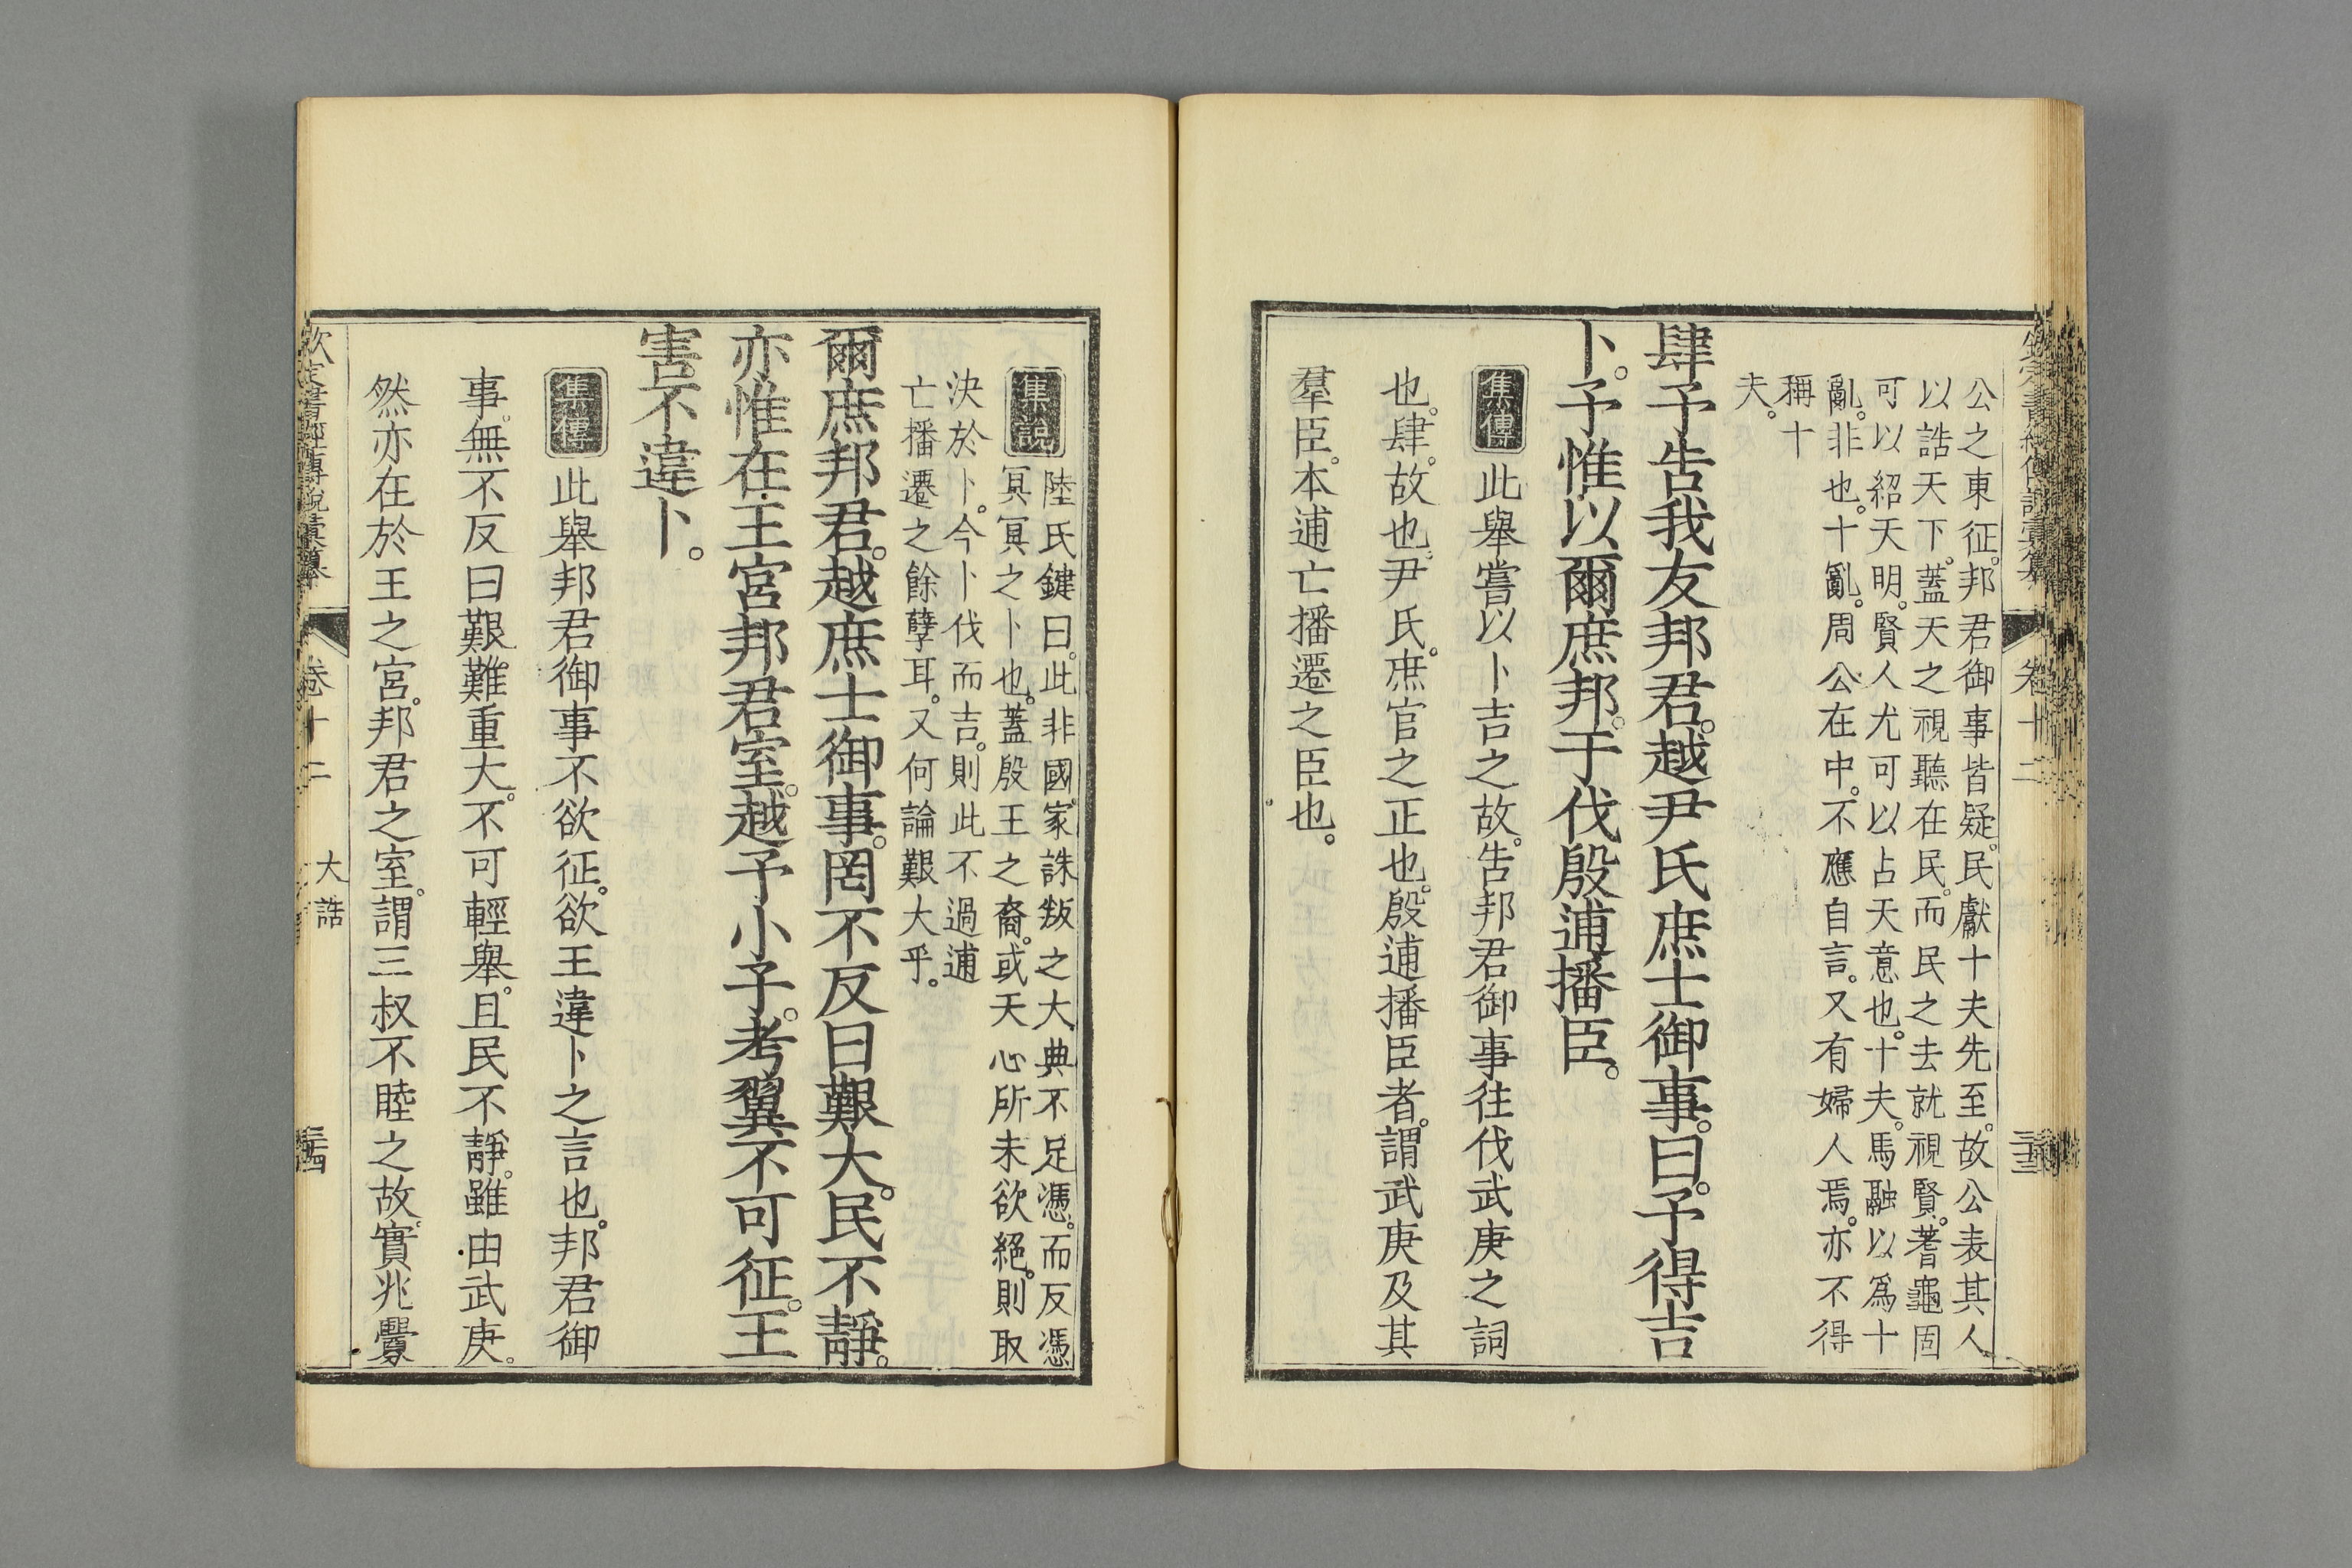 公之東征。邦君御事皆疑。民獻十夫先至。故公表其人
以誥天下。蓋天之視聽在民。而民之去就視賢。蓍龜固
可以紹天明。賢人尤可以占天意也。十夫。馬融以爲十
亂。非也。十亂。周公在中。不應自言。又有婦人焉。亦不得
稱十
夫。
肆予告我友邦君。越尹氏庶士御事。曰。予得吉
卜。予惟以爾庶邦。于伐殷逋播臣。
集傳 此舉嘗以卜吉之故。告邦君御事往伐武庚之詞
也。肆。故也。尹氏。庶官之正也。殷逋播臣者。謂武庚及其
羣臣。本逋亡播遷之臣也。
卷十二
集說 陸氏鍵曰。此非國家誅叛之大典不足憑。而反憑
冥冥之卜也。蓋殷王之裔。或天心所未欲絕。則取
決於卜。今卜伐而吉。則此不過逋
亡播遷之餘孽耳。又何論艱大乎。
爾庶邦君。越庶士御事。罔不反曰艱大。民不靜。
亦惟在王宮邦君室。越予小子。考翼不可征。王
害不違卜。
集傳 此舉邦君御事不欲征。欲王違卜之言也。邦君御
事。無不反曰艱難重大。不可輕舉。且民不靜。雖由武庚。
然亦在於王之宮。邦君之室。謂三叔不睦之故。實兆釁
欽定書經傳說彙纂 卷十二 大誥